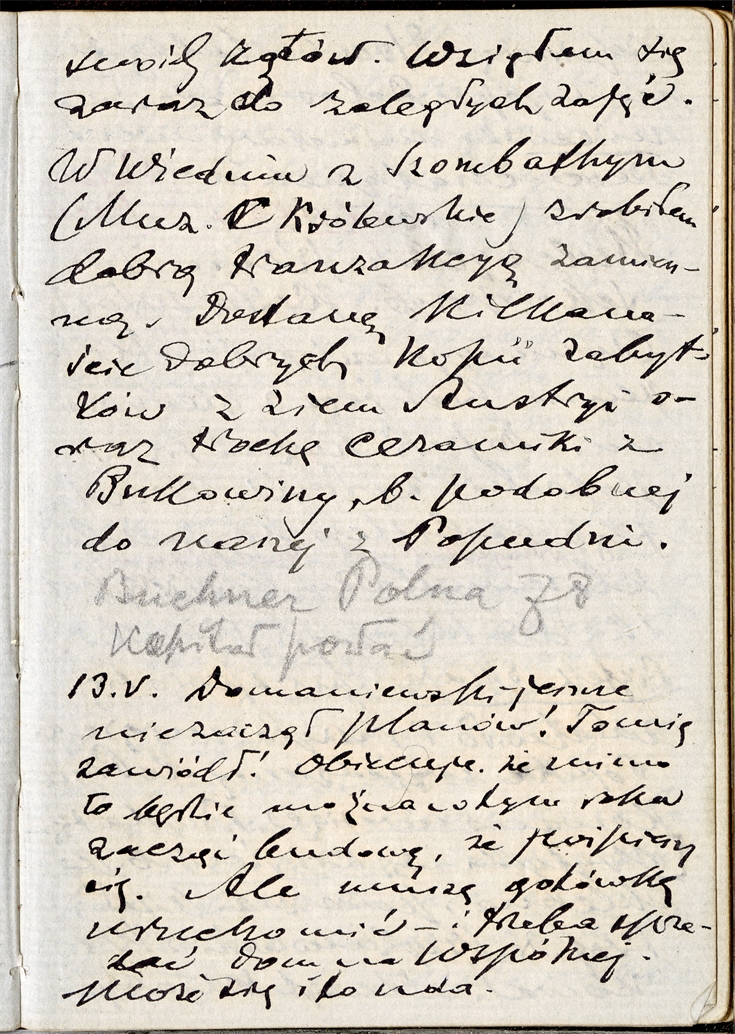 Wziąłem się
zaraz do zaległych zajęć.
W Wiedniu z Szombathym
(Muz. C Królewskie) zrobiłem
dobrą tranzakcyę zamien-
ną. Dostaną kilkana-
ście dobrych kopii zabyt-
ków z ziem Austryi o-
raz trochę ceramiki z
Bukowiny, b. podobnej
do naszej z Popudni.
Buchner Polna 78
Kapitał
13.V. Domaniewski jeszcze
nie zaczął planów! To mię
zawiódł! Obiecuje, że mimo
to będzie można w tym roku
zacząć budowę, że pośpieszy
się. Ale muszę gotówkę
uruchomić – i trzeba sprze-
dać dom na Wspólnej.
Może się i to uda.